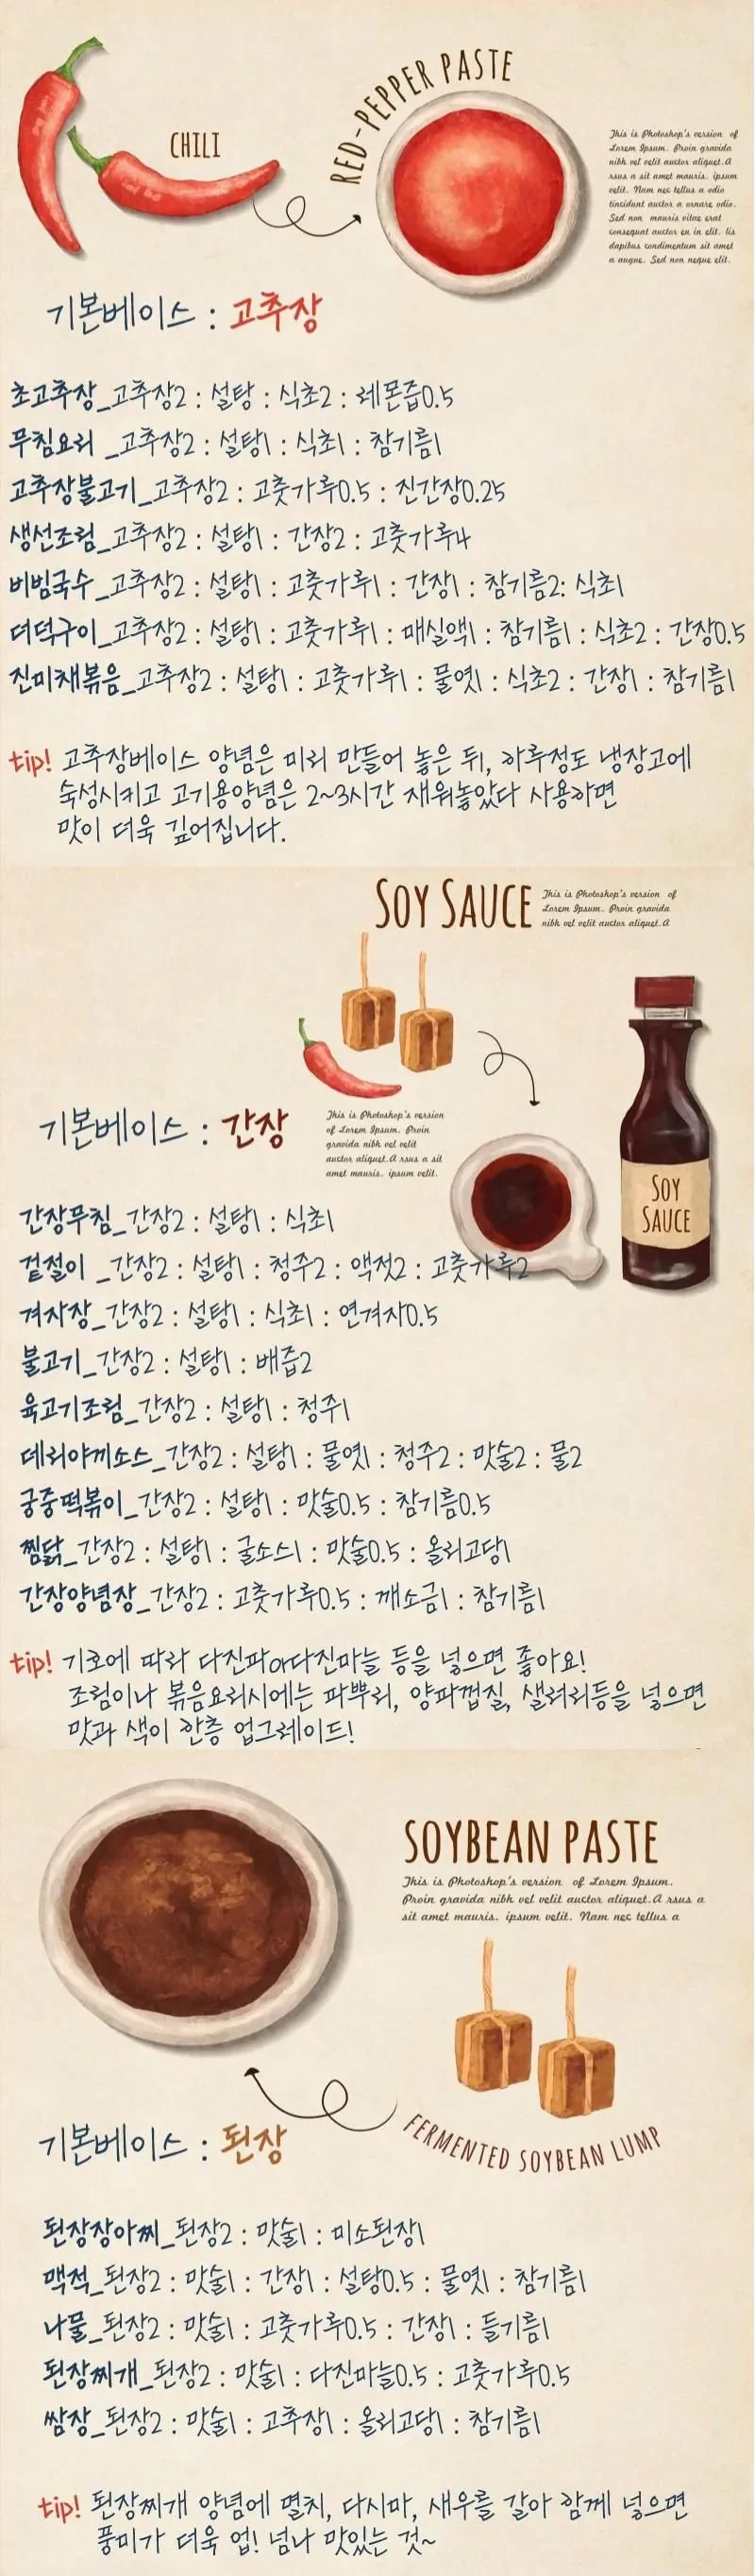 CHILI
RED-PEPPER PASTE
This is Photoshop's version of
Lorem Ipsum. Proin gravida
nibh vel velit auctor aliquet.A
rsus a sit amet mauris. ipsum
velit. Nam nec tellus a odio
tincidunt auctor a ornare odio.
Sed non mauris vitae erat
consequat auctor eu in elit. lis
dapibus condimentum sit amet
a augue. Sed non neque elit.
기본베이스 : 고추장
초고추장_고추장2 : 설탕 : 식초2 : 레몬즙0.5
무침요리 _고추장2 : 설탕1 : 식초1 : 참기름1
고추장불고기_고추장2 : 고춧가루0.5 : 진간장0.25
생선조림_고추장2 : 설탕1 : 간장2 : 고춧가루4
비빔국수_고추장2 : 설탕1 : 고춧가루1 : 간장1 : 참기름2: 식초1
더덕구이_고추장2 : 설탕1 : 고춧가루1 : 매실액1 : 참기름1 : 식초2 : 간장0.5
진미채볶음_고추장2 : 설탕1 : 고춧가루1 : 물엿1 : 식초2 : 간장1 : 참기름1
tip! 고추장베이스 양념은 미리 만들어 놓은 뒤, 하루정도 냉장고에
숙성시키고 고기용양념은 2~3시간 재워놓았다 사용하면
맛이 더욱 깊어집니다.
SOY SAUCE
This is Photoshop's version of
Lorem Ipsum. Proin gravida
nibh vel velit auctor aliquet.A
기본베이스 : 간장
This is Photoshop's version
of Lorem Ipsum. Proin
gravida nibh vel velit
auctor aliquet.A rsus a sit
amet mauris. ipsum velit.
SOY
SAUCE
간장무침_간장2 : 설탕1 : 식초1
겉절이 _간장2 : 설탕1 : 청주2 : 액젓2 : 고춧가루2
겨자장_간장2 : 설탕1 : 식초1 : 연겨자0.5
불고기_간장2 : 설탕1 : 배즙2
육고기조림_간장2 : 설탕1 : 청주1
데리야끼소스_간장2 : 설탕1 : 물엿1 : 청주2 : 맛술2 : 물2
궁중떡볶이_간장2 : 설탕1 : 맛술0.5 : 참기름0.5
찜닭_간장2 : 설탕1 : 굴소스1 : 맛술0.5 : 올리고당1
간장양념장_간장2 : 고춧가루0.5 : 깨소금1 : 참기름1
tip! 기호에 따라 다진파or다진마늘 등을 넣으면 좋아요!
조림이나 볶음요리시에는 파뿌리, 양파껍질, 샐러리등을 넣으면
맛과 색이 한층 업그레이드!
SOYBEAN PASTE
This is Photoshop's version of Lorem Ipsum.
Proin gravida nibh vel velit auctor aliquet.A rsus a
sit amet mauris. ipsum velit. Nam nec tellus a
FERMENTED SOYBEAN LUMP
기본베이스 : 된장
된장장아찌_된장2 : 맛술1 : 미소된장1
맥적_된장2 : 맛술1 : 간장1 : 설탕0.5 : 물엿1 : 참기름1
나물_된장2 : 맛술1 : 고춧가루0.5 : 간장1 : 들기름1
된장찌개_된장2 : 맛술1 : 다진마늘0.5 : 고춧가루0.5
쌈장_된장2 : 맛술1 : 고추장1 : 올리고당1 : 참기름1
tip! 된장찌개 양념에 멸치, 다시마, 새우를 갈아 함께 넣으면
풍미가 더욱 업! 넘나 맛있는 것~